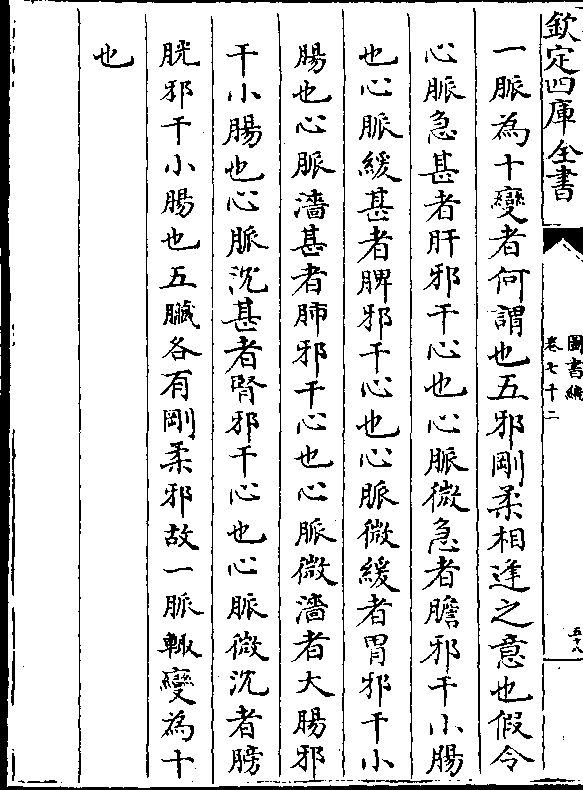 欽定四庫全書
圖書編
卷七十二
五十八
一脈為十變者何謂也五邪剛柔相逢之意也假令
心脈急甚者肝邪干心也心脈微急者膽邪干小腸
也心脈緩甚者脾邪干心也心脈微緩者胃邪干小
腸也心脈濇甚者肺邪干心也心脈微濇者大腸邪
干小腸也心脈沉甚者腎邪干心也心脈微沉者膀
胱邪干小腸也五臟各有剛柔邪故一脈輙變為十
也